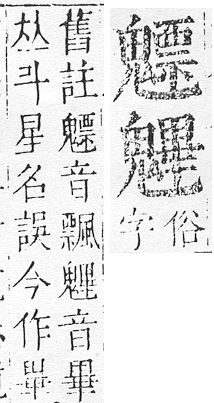 魒魓
俗
字
舊註魒音飄魓音畢
𠀤斗星名誤今作